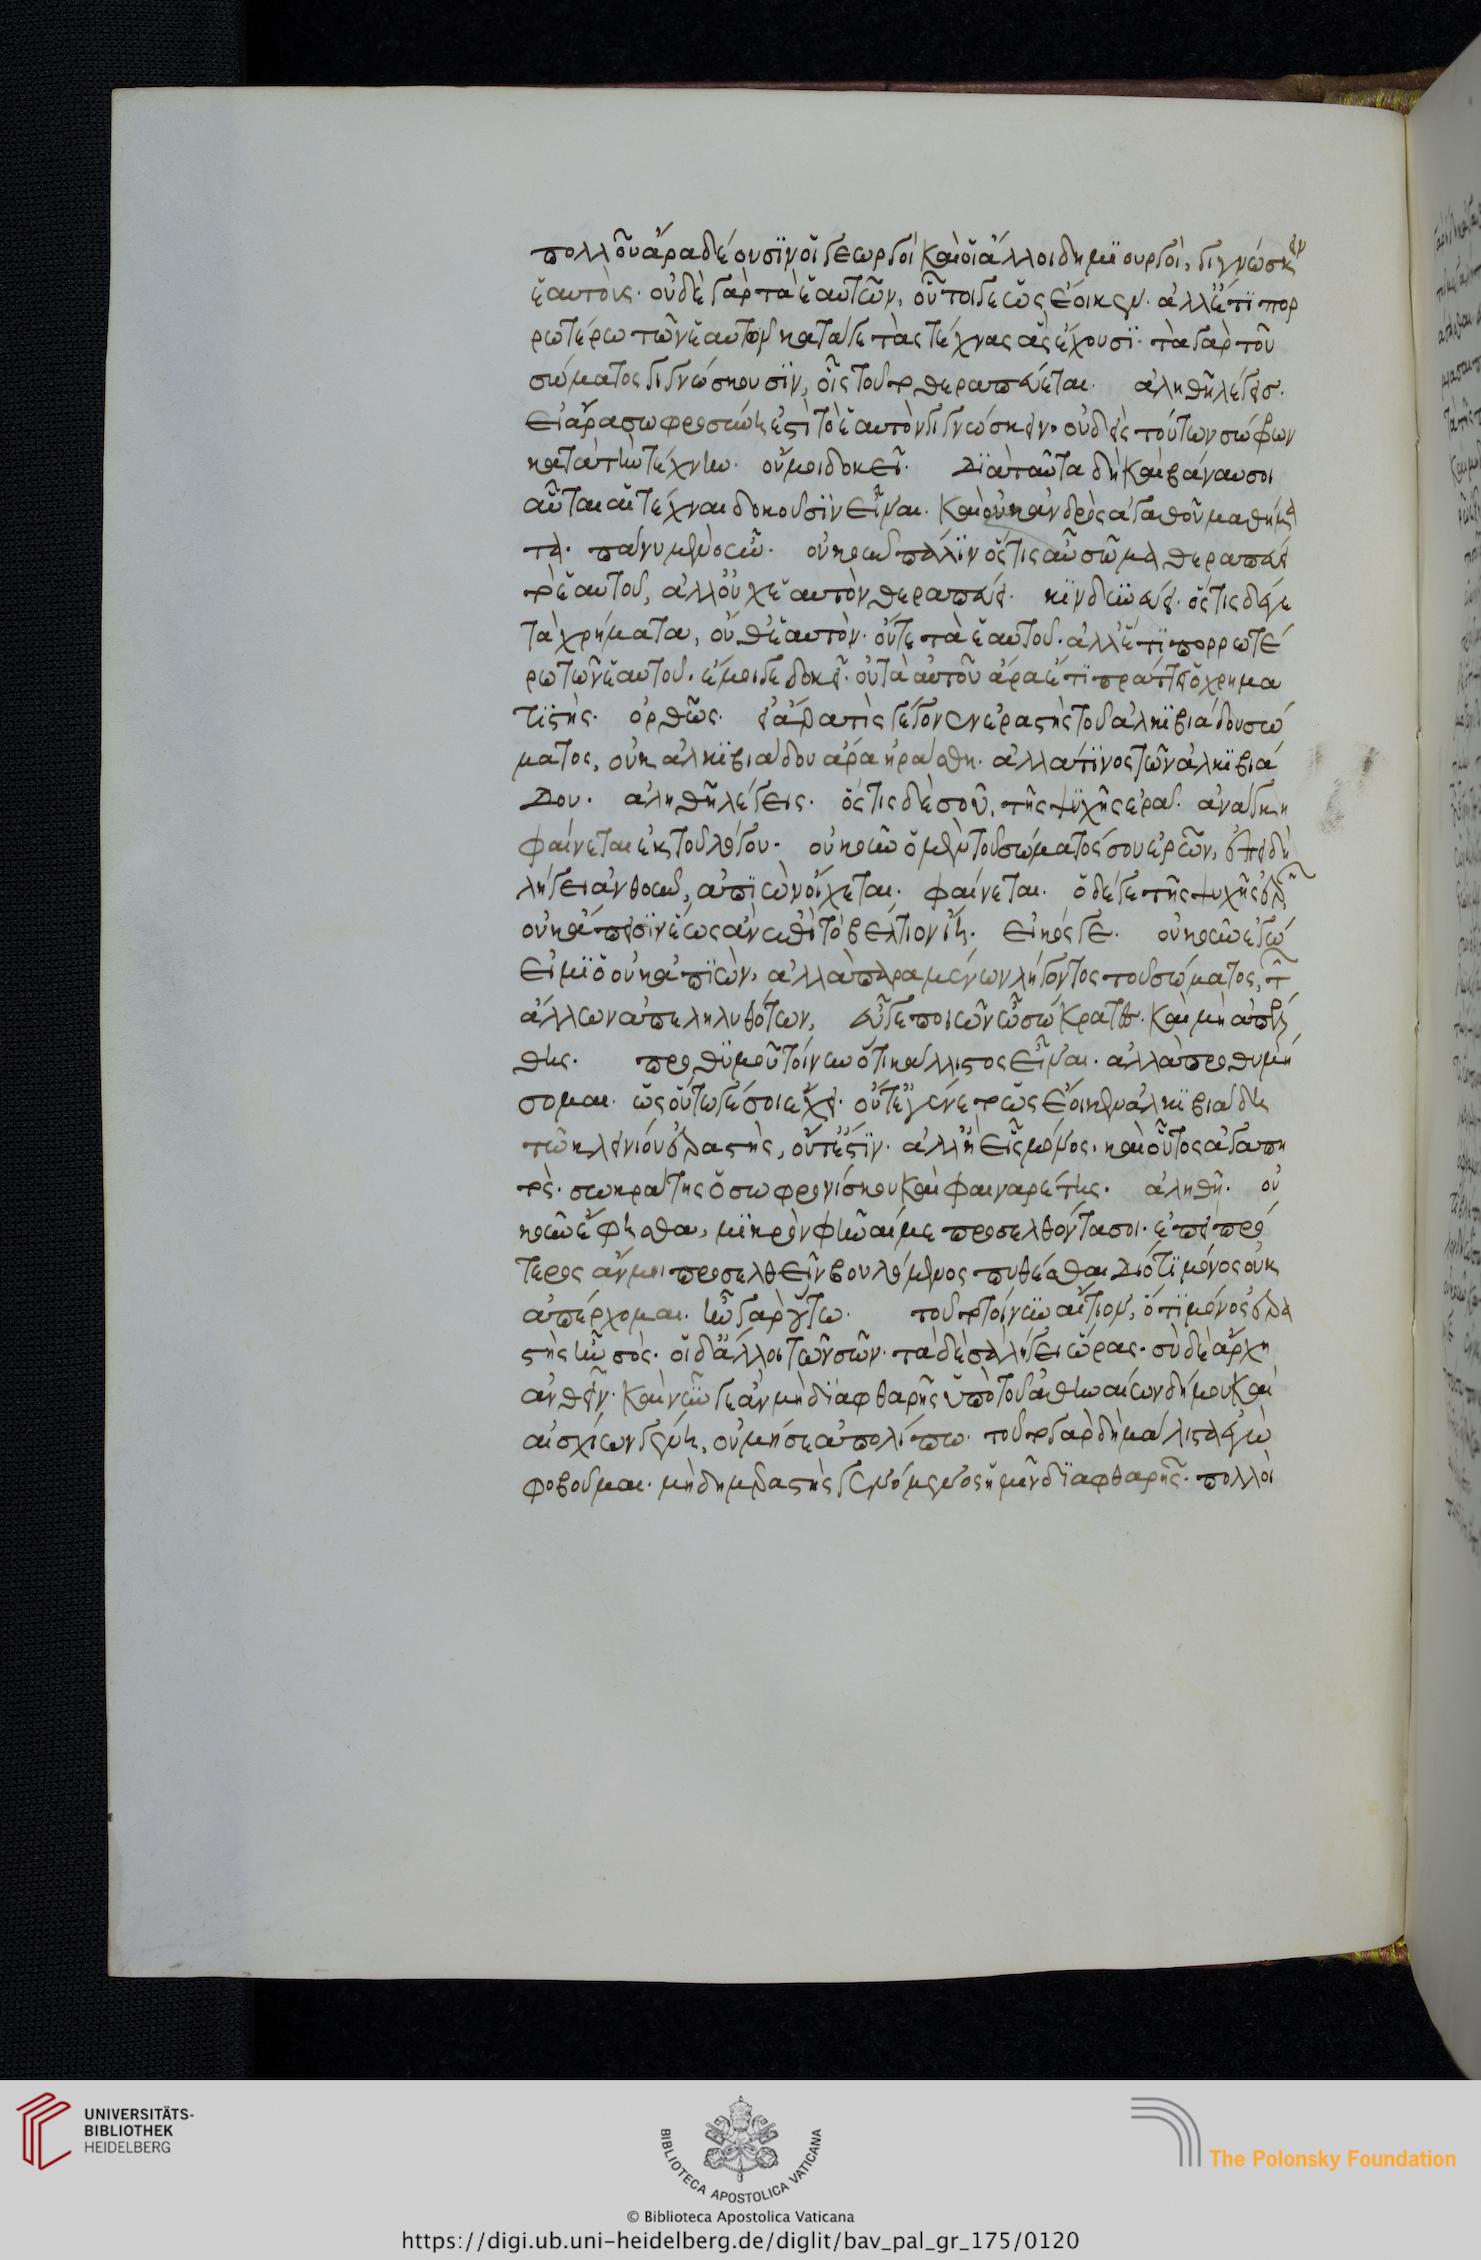 πολλοῦ ἄρα δέουσιν οἱ γεωργοὶ καὶ οἱ ἄλλοι δημιουργοὶ, γιγνώσκειν
ἑαυτούς. οὐδὲ γὰρ τὰ ἑαυτῶν, οὗτοί γε ὡς ἔοικεν. ἀλλ' ἔτι πορ
ρωτέρω τῶν ἑαυτῶν κατά γε τὰς τέχνας ἃς ἔχουσι. τὰ γὰρ τοῦ
σώματος γιγνώσκουσιν, οἷς τοῦτο θεραπεύεται. ἀληθῆ λέγεις.
εἰ ἄρα σωφροσύνη ἐστὶ τὸ ἑαυτὸν γιγνώσκειν. οὐδεὶς τούτων σώφρων
κατὰ τὴν τέχνην. οὔ μοι δοκεῖ. διὰ ταῦτα δὴ καὶ βάναυσοι
αὗται αἱ τέχναι δοκοῦσιν εἶναι. καὶ οὐκ ἀνδρὸς ἀγαθοῦ μαθήμα
τα. πάνυ μὲν οὖν. οὐκοῦν πάλιν ὅστις αὖ σῶμα θεραπεύει
τὰ ἑαυτοῦ, ἀλλ' οὐχ ἑαυτὸν θεραπεύει. κινδυνεύει. ὅστις δέ γε
τὰ χρήματα, οὔθ' ἑαυτὸν. οὔτε τὰ ἑαυτοῦ. ἀλλ' ἔτι πορρωτέ
ρω τῶν ἑαυτοῦ. ἔμοιγε δοκεῖ. οὐ τὰ αὑτοῦ ἄρα ἔτι πράττει ὁ χρημα
τιστής. ὀρθῶς. εἰ ἄρα τὶς γέγονεν ἐραστὴς τοῦ ἀλκιβιάδου σώ
ματος, οὐκ ἀλκιβιάδου ἄρα ἠράσθη. ἀλλά τινος τῶν ἀλκιβιά
δου. ἀληθῆ λέγεις. ὅστις δὲ σοῦ, τῆς ψυχῆς ἐρᾷ. ἀνάγκη
φαίνεται ἐκ τοῦ λόγου. οὐκοῦν ὁ μὲν τοῦ σώματός σου ἐρῶν, ἐπειδὴ
λήγει ἀνθοῦν, ἀπιὼν οἴχεται. φαίνεται. ὁ δέ γε τῆς ψυχῆς ἐρῶν
οὐκ ἄπεισιν ἕως ἂν ἐπὶ τὸ βέλτιον ἴῃ. εἰκός γε. οὐκοῦν ἐγώ
εἰμι ὁ οὐκ ἀπιὼν, ἀλλὰ παραμένων λήγοντος τοῦ σώματος, τῶν
ἄλλων ἀπεληλυθότων, εὖ γε ποιῶν ὦ σώκρατες. καὶ μὴ ἀπέλ
θῃς. προθυμοῦ τοίνυν ὅτι κάλλιστος εἶναι. ἀλλὰ προθυμή
σομαι. ὡς οὕτω γέ σοι ἔχει. οὔτ' ἐγένετο ὡς ἔοικεν ἀλκιβιάδῃ
τῷ κλεινίου ἐραστὴς, οὔτ' ἔστιν. ἀλλ' ἢ εἷς μόνος. καὶ οὗτος ἀγαπη
τὸς. σωκράτης ὁ σωφρονίσκου καὶ φαιναρέτης. ἀληθῆ. οὐ
κοῦν ἔφησθα, μικρὸν φθῆναί με προσελθόντα σοι. ἐπεὶ πρό
τερος ἄν μοι προσελθεῖν βουλόμενος πυθέσθαι διότι μόνος οὐκ
ἀπέρχομαι. ἦν γὰρ οὕτω. τοῦτο τοίνυν αἴτιον, ὅτι μόνος ἐρα
στὴς ἦν σὸς. οἱ δ' ἄλλοι τῶν σῶν. τὰ δὲ σὰ λήγει ὥρας. σὺ δὲ ἄρχῃ
ἀνθεῖν. καὶ νῦν γε ἂν μὴ διαφθαρῇς ὑπὸ τοῦ ἀθηναίων δήμου καὶ
αἰσχίων γένῃ, οὐ μή σε ἀπολίπω. τοῦτο γὰρ δὴ μάλιστα ἐγὼ
φοβοῦμαι. μὴ δημεραστὴς γενόμενος ἡμῖν διαφθαρῇς. πολλοὶ
UNIVERSITÄTS-
BIBLIOTHEK
HEIDELBERG
BIBLIOTECA APOSTOLICA VATICANA
The Polonsky Foundation
© Biblioteca Apostolica Vaticana
https://digi.ub.uni-heidelberg.de/diglit/bav_pal_gr_175/0120